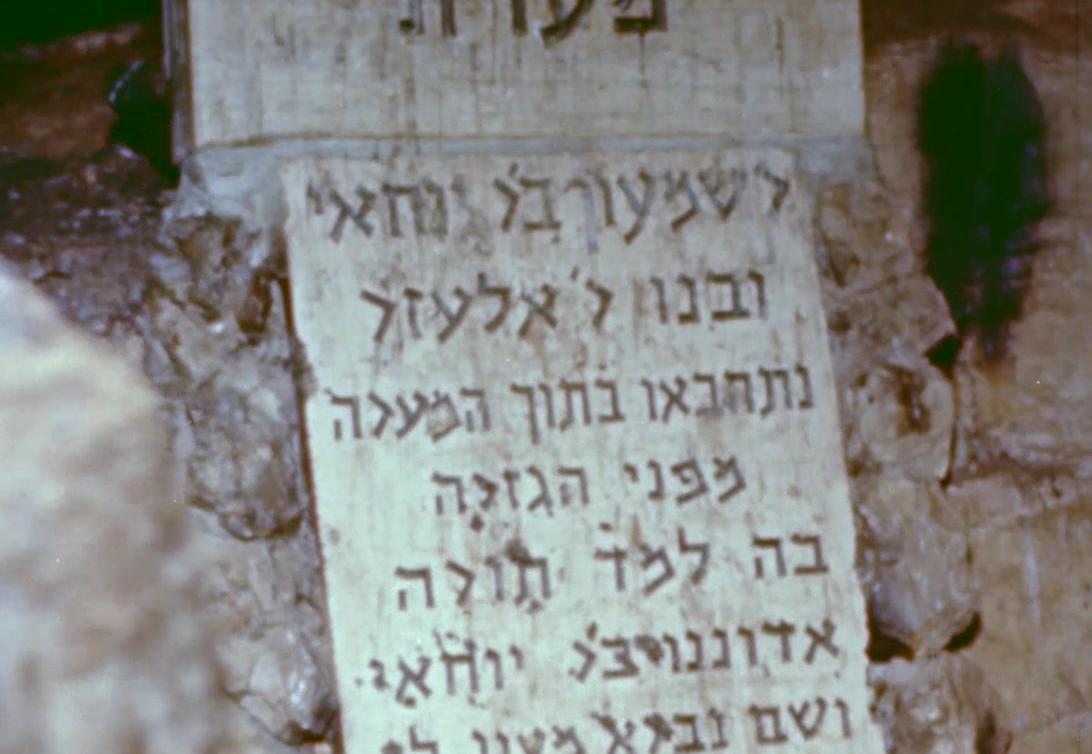 מערת
ר' שמעון ב"ר יוחאי
ובנו ר' אלעזר
נתחבאו בתוך המערה
מפני הגזרה
בה למד תורה
אדוננו ב"ר יוחאי
ושם נברא מעין לו